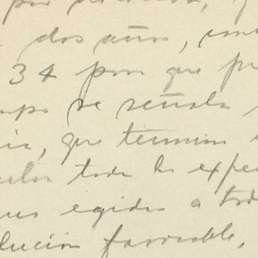 por
dos años,
34 pero que
se señala
que termina
toda la expe
us egidos a tod
lución favorable,